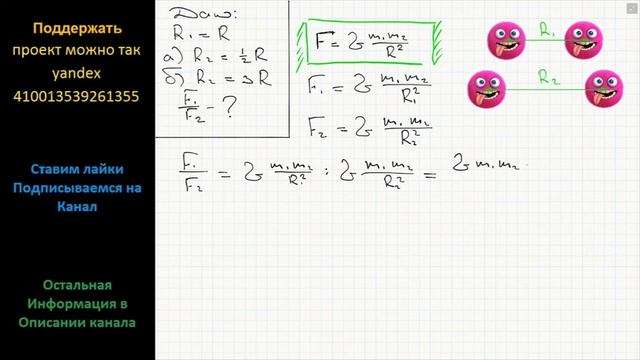 Поддержать
проект можно так
yandex
410013539261355
Ставим лайки
Подписываемся на
Канал
Остальная
Информация в
Описании канала
Дано:
R₁ = R
а) R₂ = ½ R
б) R₂ = 3 R
F₁/F₂ - ?
F = G m₁m₂/R²
F₁ = G m₁m₂/R₁²
F₂ = G m₁m₂/R₂²
F₁/F₂ = G m₁m₂/R₁² : G m₁m₂/R₂² = G m₁m₂
R₁
R₂